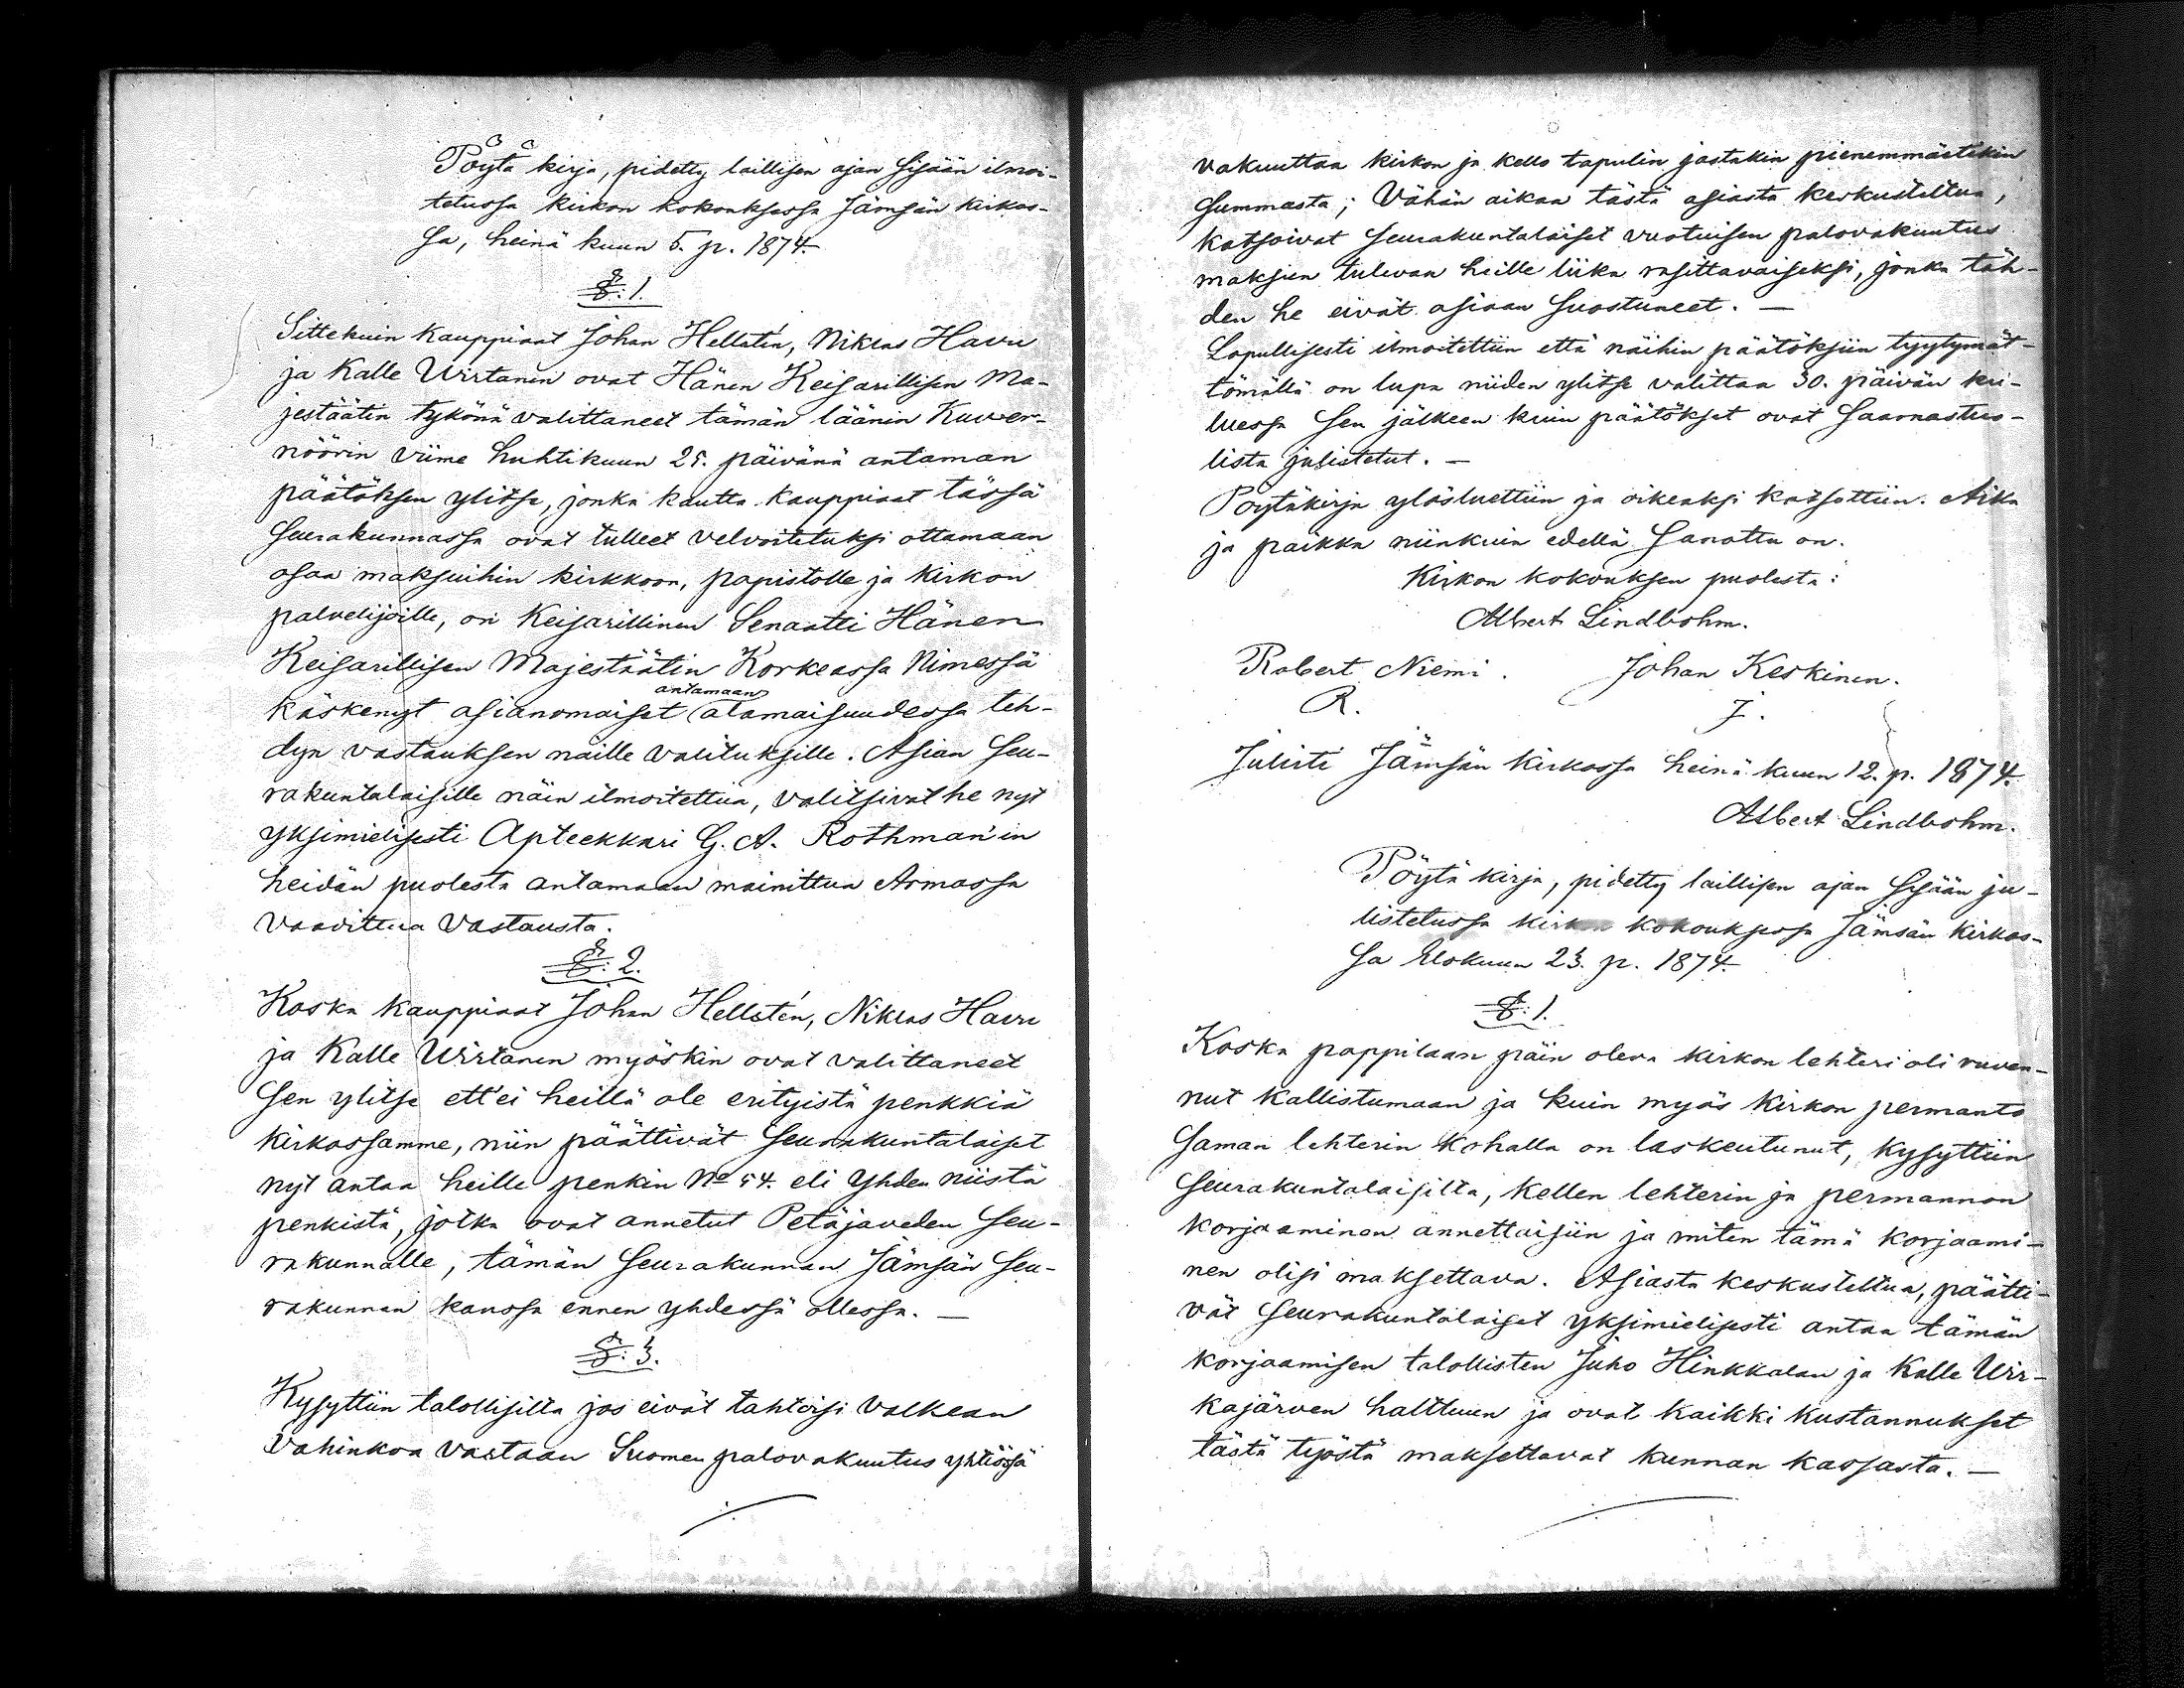 Pöytä kirja, pidetty laillisen ajan sisään ilmoi-
tetussa kirkon kokouksessa Jämsän kirkos-
sa, heinä kuun 5. p. 1874.
§: 1.
Sittekuin Kauppiaat Johan Hellstén, Niklas Havu
ja Kalle Wirtanen ovat Hänen Keisarillisen Ma-
jestäätin tykönä valittaneet tämän läänin Kuver-
nöörin viime huhtikuun 25. päivänä antaman
päätöksen ylitse, jonka kautta Kauppiaat tässä
seurakunnassa ovat tulleet velvoitetuksi ottamaan
osaa maksuihin kirkkoon, papistolle ja kirkon
palvelijoille, on Keisarillinen Senaatti Hänen
Keisarillisen Majestäätin Korkeassa Nimessä
antamaan
käskenyt asianomaiset alamaisuudessa teh-
dyn vastauksen näille valituksille. Asian seu-
rakuntalaisille näin ilmoitettua, valitsivat he nyt
yksimielisesti Apteekkari G. A. Rothman'in
heidän puolesta antamaan mainittua Armossa
vaadittua vastausta.
§: 2.
Koska Kauppiaat Johan Hellstén, Niklas Havu
ja Kalle Wirtanen myöskin ovat valittaneet
sen ylitse ett'ei heillä ole erityistä penkkiä
kirkossamme, niin päättivät seurakuntalaiset
nyt antaa heille penkin No 54. eli yhden niistä
penkistä, jotka ovat annetut Petäjaveden seu-
rakunnalle, tämän seurakunnan Jämsän seu-
rakunnan kanssa ennen yhdessä ollessa. —
§: 3.
Kysyttiin talollisilta jos eivät tahtoisi valkean
vahinkoa vastaan Suomen palovakuutus yhtiössä
vakuuttaa kirkon ja kello tapulin jostakin pienemmästäkin
summasta; Vähän aikaa tästä asiasta keskusteltua,
katsoivat seurakuntalaiset vuotuisen palovakuutus
maksun tulevan heille liika rasittavaiseksi, jonka täh-
den he eivät asiaan suostuneet. —
Lopullisesti ilmoitettiin että näihin päätöksiin tyytymät-
tömällä on lupa niiden ylitse valittaa 30. päivän ku-
luessa sen jälkeen kuin päätökset ovat saarnastuo-
lista julistetut. —
Pöytäkirja ylösluettiin ja oikeaksi katsottiin. Aika
ja paikka niinkuin edellä sanottu on.
Kirkon kokouksen puolesta:
Albert Lindbohm.
Robert Niemi. Johan Keskinen.
R. J.
Julisti Jämsän kirkossa heinä kuun 12. p. 1874.
Albert Lindbohm.
Pöytä kirja, pidetty laillisen ajan sisään ju-
listetussa kirkon kokouksessa Jämsän kirkos-
sa Elokuun 23. p. 1874.
§: 1.
Koska pappilaan päin oleva kirkon lehteri oli ruven-
nut kallistumaan ja kuin myös kirkon permanto
saman lehterin kohalla on laskeutunut, kysyttiin
seurakuntalaisilta, kellen lehterin ja permannon
korjaaminen annettaisiin ja miten tämä korjaami-
nen olisi maksettava. Asiasta keskusteltua, päätti-
vät seurakuntalaiset yksimielisesti antaa tämän
korjaamisen talollisten Juho Hinkkalan ja Kalle Wir-
kajärven halttuun ja ovat kaikki kustannukset
tästä työstä maksettavat kunnan kassasta. —